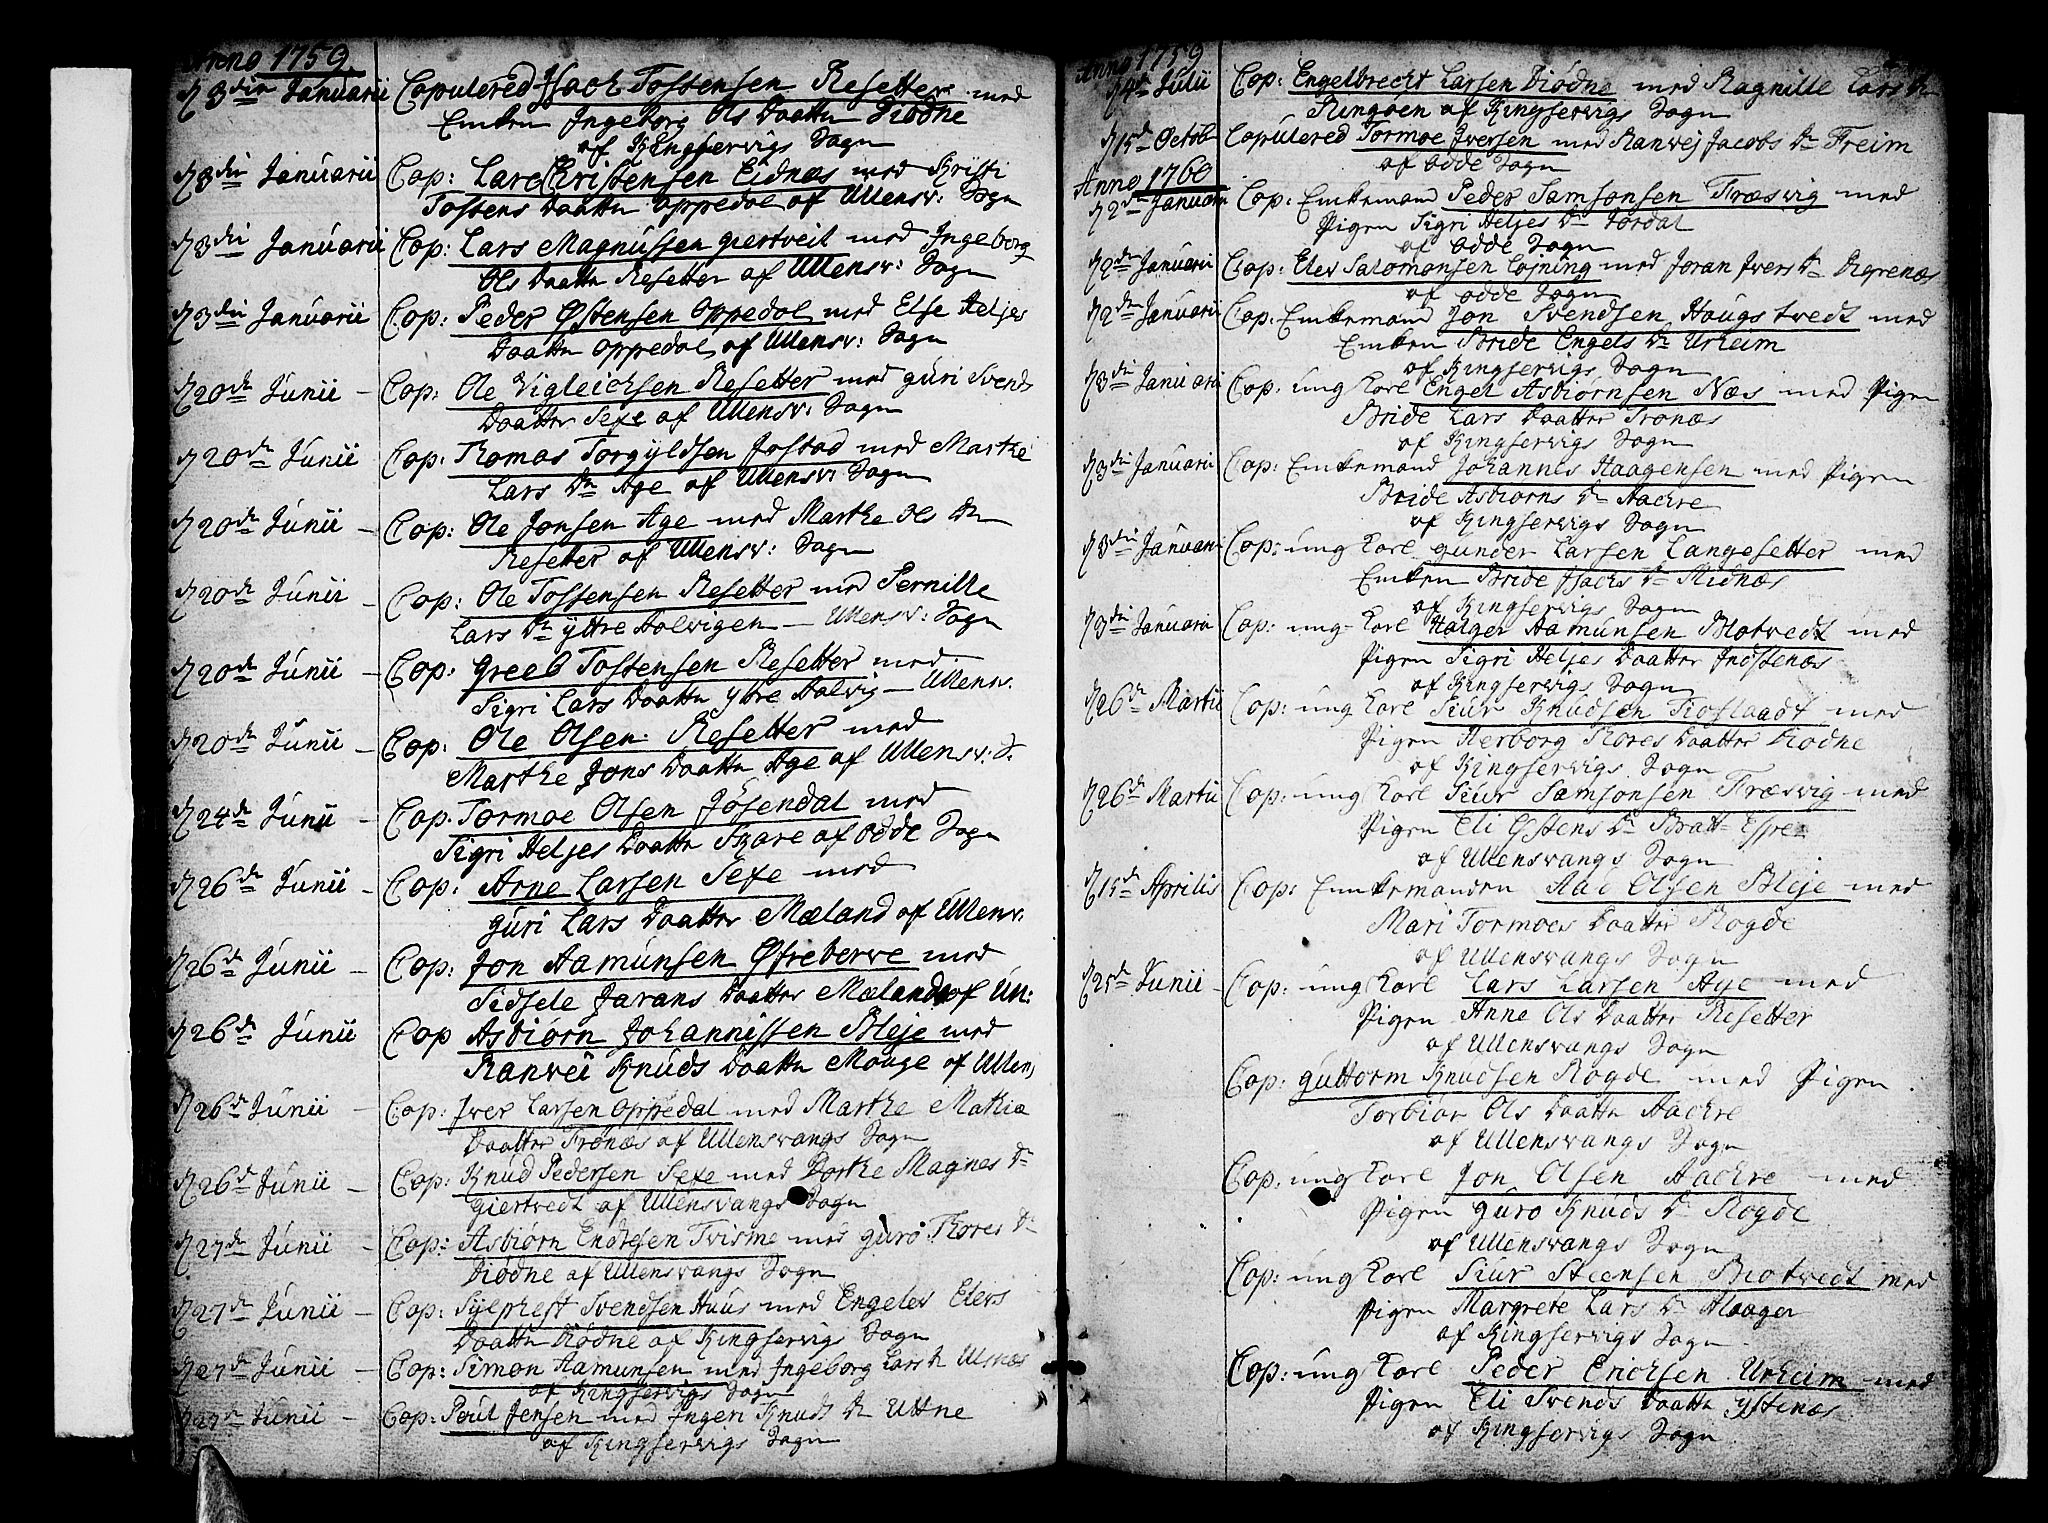 Anno 1759
d 3die Januarii Copulered Isach Tostensen Resetter med
Enken Ingeborg Ols Daatter Diødne
af Kingservigs Sogn
d 3die Januarii Cop: Lars Christensen Eidnæs med Kristi
Tostens Daatter Oppedal af Ullensv: Sogn
d 3die Januarii Cop: Lars Magnussen giertveit med Ingeborg
Ols Daatter Resetter af Ullensv: Sogn
d 3die Januarii Cop: Peder Østensen Oppedal med Else Heljes
Daatter Oppedal af Ullensv: Sogn
d 20de Junii – Cop: Ole Vigleichsen Resetter med guri Svends
Daatter Sexe af Ullensv: Sogn
d 20de Junii Cop: Thomas Torgyldsen Jostad med Marthe
Lars Dr Age af Ullensv: Sogn
d 20de Junii – Cop: Ole Jonsen Age med Marthe Ols Dr
Resetter af Ullensv: Sogn
d 20de Junii – Cop: Ole Tostensen Resetter med Pernille
Lars Dr Yttre Aalvigen – Ullensv: Sogn
d 20de Junii – Cop: Greeb Tostensen Resetter med
Sigri Lars Daatter Ytre Aalvig – Ullensv.
d 20de Junii – Cop: Ole Olsen Resetter med
Marthe Jons Daatter Age af Ullensv: S.
d 24de Junii Cop. Tormoe Olsen Jøsendal med
Sigri Heljes Daatter Skare af Odde Sogn
d 26de Junii – Cop: Arne Larsen Sexe med
guri Lars Daatter Mæland af Ullensv.
d 26de Junii – Cop: Jon Aamunsen Øfreberve med
Sidsele Jarans Daatter Mæland af Ull:
d 26de Junii Cop Asbiørn Johannissen Bleje med
Ranvei Knuds Daatter Mauge af Ullen,
d 26de Junii – Cop: Iver Larsen Oppedal med Marthe Mathia
Daatter Trønæs af Ullensvangs Sogn
d 26de Junii – Cop: Knud Pedersen Sexe med Dorthe Magnes Dr
giertvedt af Ullensvangs Sogn
d 27de Junii – Cop: Asbiørn Endresen Tvisme med guro Thores Dr
Diødne af Ullensvangs Sogn
d 27de Junii – Cop: Sylphest Svendsen Huus med Engelev Elevs
Daatter Diødne af Kingservigs Sogn
d 27de Junii – Cop: Simon Aamunsen med Ingeborg Lars Dr Ulsnæs
af Kingservigs Sogn
d 27de Junii – Cop: Poul Jensen med Ingeri Knuds Dr Uttne
af Kingservigs Sogn
Anno 1759
d 4de Julii Cop: Engelbrecht Larsen Diødne med Ragnille Lars Dr
Ringøen af Kingservigs Sogn
d 15de Octob Copulered Tormoe Iversen med Ranvej Jacobs Dr Freim
af Odde Sogn
Anno 1760
d 2de Januarii Cop: Enkemand Peder Samsonsen Træsvig med
Pigen Sigri Heljes Dr Jordal
af Odde Sogn
d 2den Januarii Cop: Elev Salomonsen Lojning med Joran Ivers Dr Digrenæs
af Odde Sogn
d 2den Januarii Cop: Enkemand Jon Svendsen Haugstvedt med
Enken Bride Engels Dr Urheim
af Kingservigs Sogn
d 3die Januarii Cop: ung Karl Engel Asbiørnsen Næs med Pigen
Bride Lars Daatter Tronæs
af Kingservigs Sogn
d 3die Januarii Cop: Enkemand Johannes Haagensen med Pigen
Bride Asbiørns Dr Aachre
af Kingservigs Sogn
d 3die Januarii Cop: ung Karl gunder Larsen Langesetter med
Enken Bride Isachs Dr Midnæs
af Kingservigs Sogn
d 3die Januarii Cop: ung Karl Holger Aamunsen Blotvedt med
Pigen Sigri Heljes Daatter Instenæs
af Kingservigs Sogn
d 26de Martii Cop: ung Karl Siur Knudsen Tioflaadt med
Pigen Herborg Thores Daatter Diødne
af Kingservigs Sogn
d 26de Martii Cop: ung Karl Siur Samsonsen Træsvig med
Pigen Eli Østens Dr Bratt-Espe
af Ullensvangs Sogn
d 15de Aprilis Cop: Enkemanden Aad Olsen Bleje med
Mari Tormoes Daatter Rogde
af Ullensvangs Sogn
d 25de Junii – Cop: ung Karl Lars Larsen Age med
Pigen Anne Ols Daatter Resetter
af Ullensvangs Sogn
Cop: guttorm Knudsen Rogde med Pigen
Torbiør Ols Daatter Aachre
af Ullensvangs Sogn
Cop: ung Karl Jon Olsen Aachre med
Pigen guro Knuds Dr Rogde
af Ullensvangs Sogn
Cop: ung Karl Siur Steensen Blotvedt med
Pigen Margrete Lars Dr Alsager
af Kingservigs Sogn
Cop: ung Karl Peder Erichsen Urheim med
Pigen Eli Svends Daatter Ystenæs
af Kingservigs Sogn